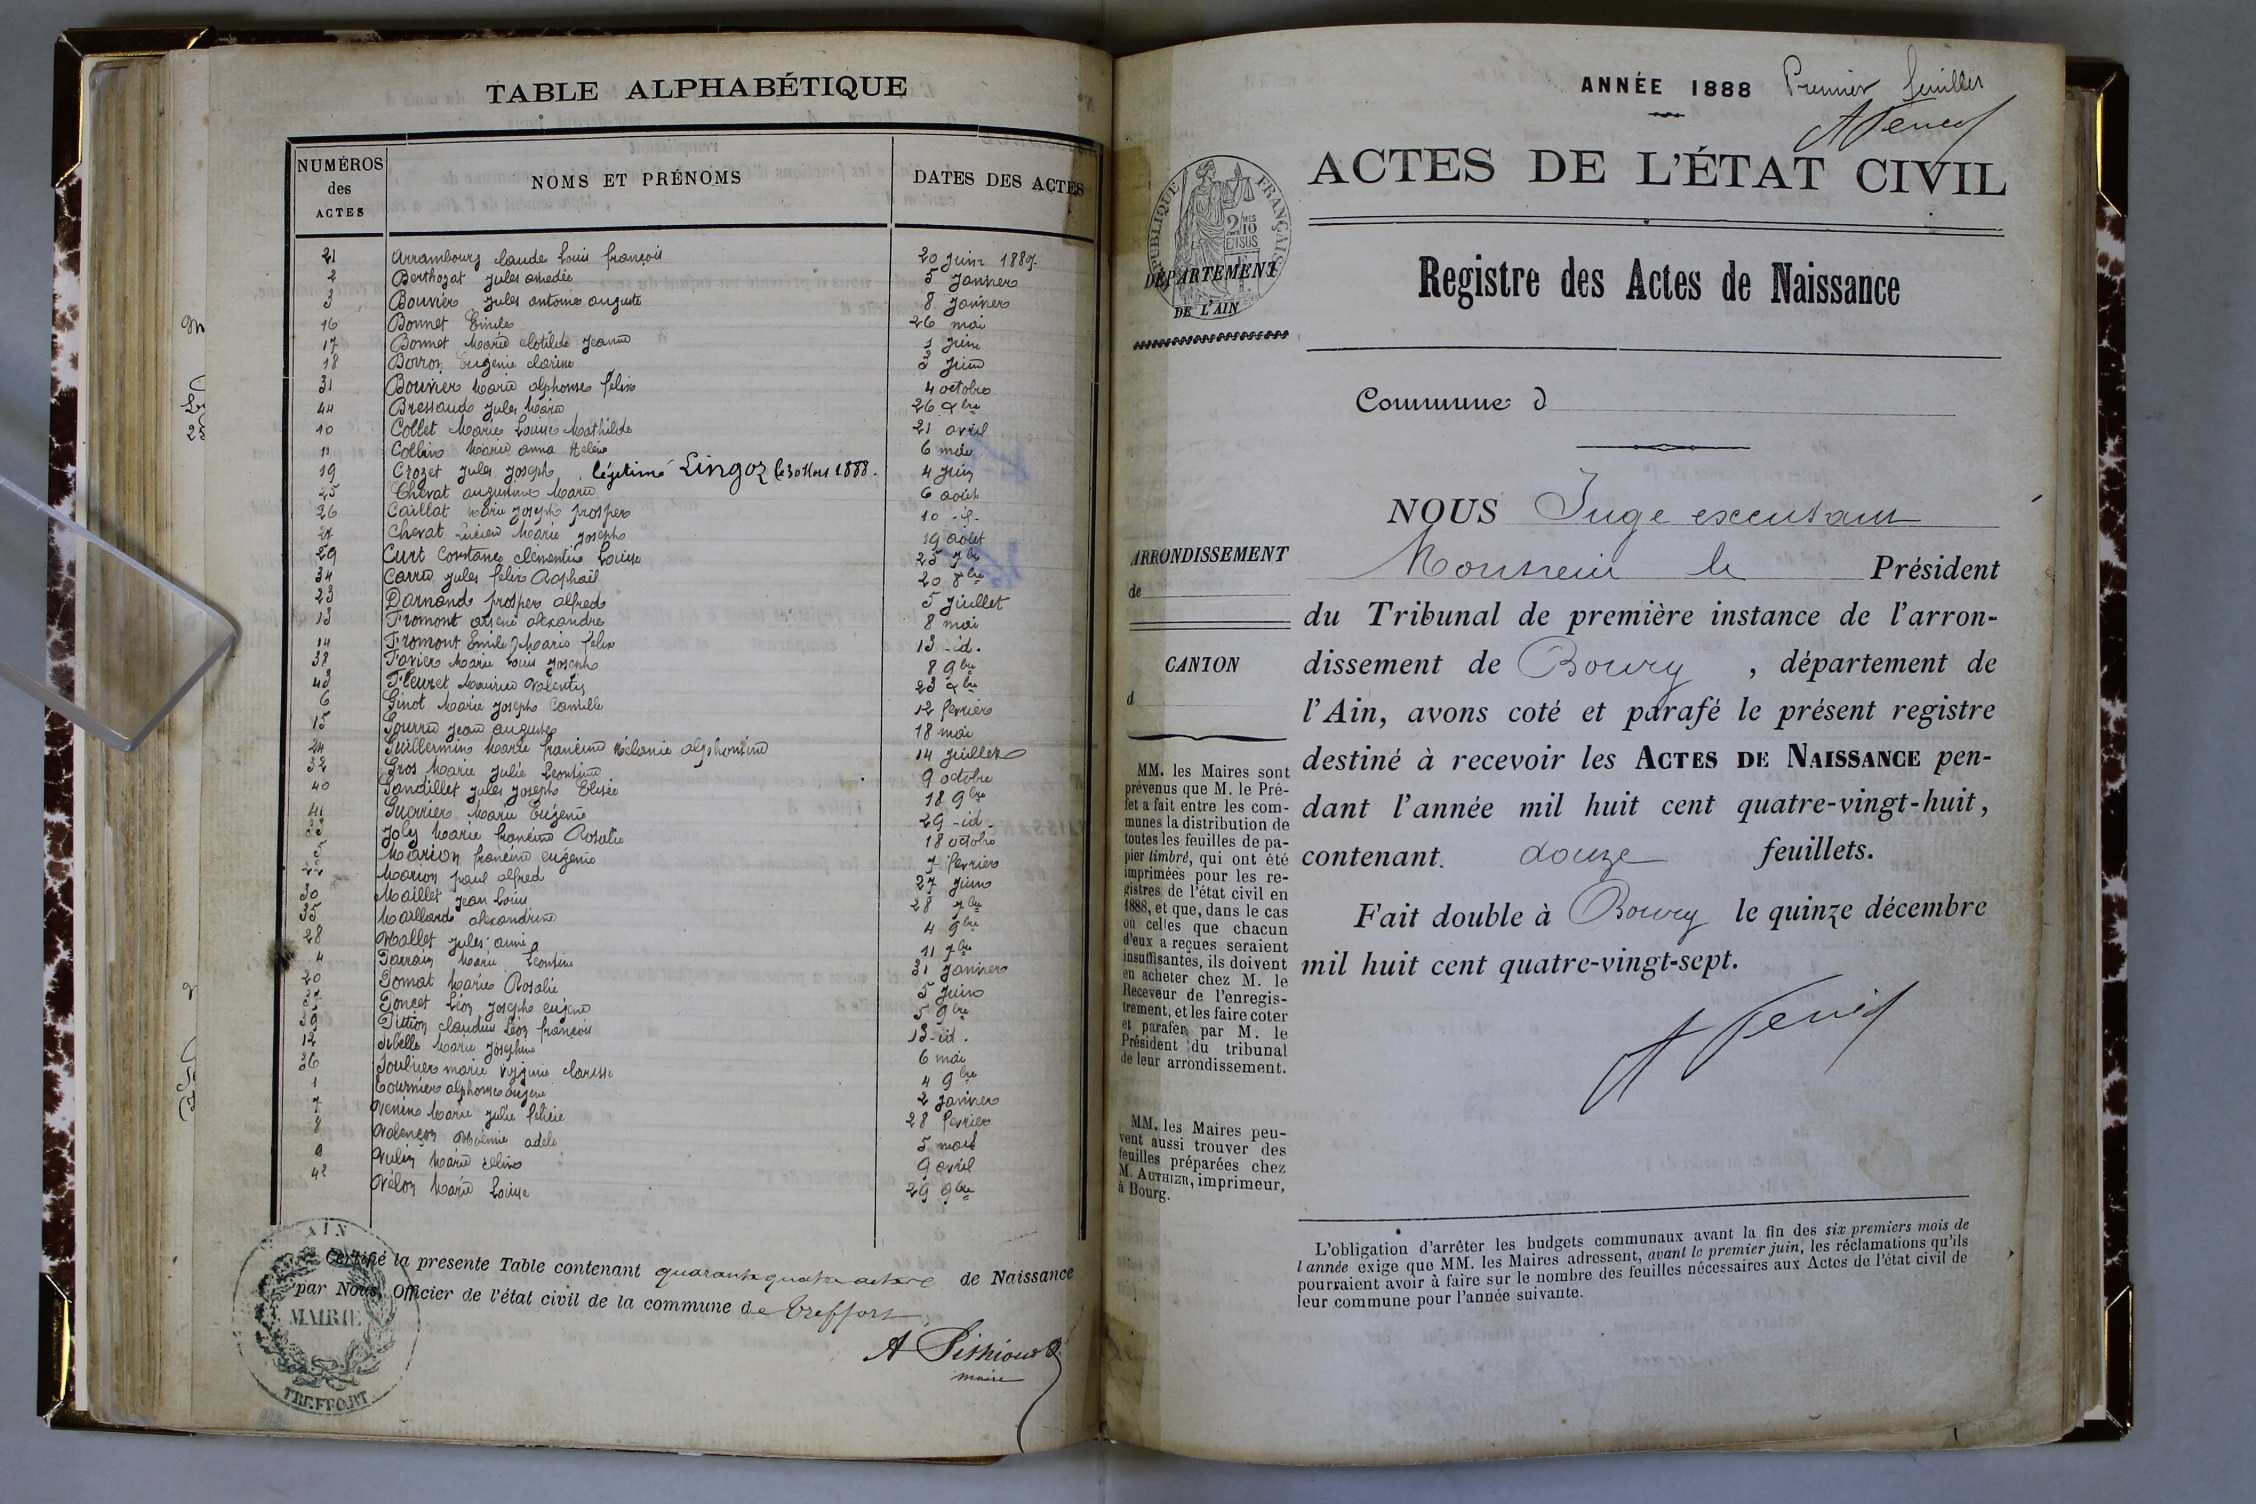 TABLE ALPHABÉTIQUE
NUMÉROS des ACTES
NOMS ET PRÉNOMS
DATES DES ACTES
21 Arrambourg claude Louis françois 20 juin 1887
2 Berthozat jules amedée 5 janvier
3 Bouvier jules antoine auguste 8 janvier
16 Bonnet Emile 26 mai
17 Bonnet Marie clotilde jeanne 1 juin
18 Borron Eugenie clarisse 3 juin
31 Bouvier Marie alphonse felix 4 octobre
44 Bressaud jules Marie 26 xbre
10 Collet Marie Louise Mathilde 21 avril
11 Collin Marie anna Helene 6 mai
19 Crozet jules joseph légitimé Lingoz le 30 1888. 4 juin
25 Chevat augustine Marie 6 août
26 Caillat Marie joseph prosper 10 -id-
27 Chevat Lucien Marie joseph 19 août
29 Curt Constance clementine Louise 25 7bre
34 Carru jules felix Raphaël 20 8bre
23 Darnand prosper alfred 5 juillet
13 Fromont arsene alexandre 8 mai
14 Fromont Emile Marie felix 13 -id.
38 Favier Marie Louis joseph 8 9bre
43 Fleuret Maurice Valentin 23 xbre
6 Ginot Marie joseph Camille 12 fevrier
15 Gourru jean auguste 18 mai
24 Guillermin Marie francine Mélanie alphonsine 14 juillet
32 Gros Marie julie Leontine 9 octobre
40 Gandillet jules joseph Elisée 18 9bre
41 Guerrier Marie Eugénie 29 -id-
33 Joly Marie francine Rosalie 18 octobre
5 Marion francine eugénie 7 fevrier
22 Marion paul alfred 27 juin
30 Maillet jean Louis 28 7bre
35 Maillard alexandrine 4 9bre
28 Mallet jules aimé 11 7bre
4 Parrain Marie Leontine 31 janvier
20 Pomat Marie Rosalie 5 juin
37 Poncet Léon joseph eugène 5 9bre
39 Pittion claudius Léon françois 13 -id.
12 Sibelle Marie josephine 6 mai
36 Soulier marie virginie clarisse 4 9bre
1 Tournier alphonse eugene 2 janvier
7 Venin Marie julie felicie 28 fevrier
8 Valençon Noémie adele 5 mars
9 Vulin Marie celine 9 avril
42 Vélon Marie Louise 29 9bre
Certifié la presente Table contenant quarante quatre actes de Naissance
par Nous, Officier de l'état civil de la commune de Treffort
AIN
MAIRIE
TREFFORT
maire
ANNÉE 1888 Premier feuillet
ACTES DE L'ÉTAT CIVIL
RÉPUBLIQUE FRANÇAISE
2 MES 10 EN SUS
DÉPARTEMENT
DE L'AIN
Registre des Actes de Naissance
Commune d
NOUS Juge excusant
Monsieur le Président
du Tribunal de première instance de l'arron-
dissement de Bourg, département de
l'Ain, avons coté et parafé le présent registre
destiné à recevoir les ACTES DE NAISSANCE pen-
dant l'année mil huit cent quatre-vingt-huit,
contenant douze feuillets.
Fait double à Bourg le quinze décembre
mil huit cent quatre-vingt-sept.
ARRONDISSEMENT
de
CANTON
d
MM. les Maires sont
prévenus que M. le Pré-
fet a fait entre les com-
munes la distribution de
toutes les feuilles de pa-
pier timbré, qui ont été
imprimées pour les re-
gistres de l'état civil en
1888, et que, dans le cas
où celles que chacun
d'eux a reçues seraient
insuffisantes, ils doivent
en acheter chez M. le
Receveur de l'enregis-
trement, et les faire coter
et parafer par M. le
Président du tribunal
de leur arrondissement.
MM. les Maires peu-
vent aussi trouver des
feuilles préparées chez
M. AUTHIER, imprimeur,
à Bourg.
L'obligation d'arrêter les budgets communaux avant la fin des six premiers mois de
l'année exige que MM. les Maires adressent, avant le premier juin, les réclamations qu'ils
pourraient avoir à faire sur le nombre des feuilles nécessaires aux Actes de l'état civil de
leur commune pour l'année suivante.